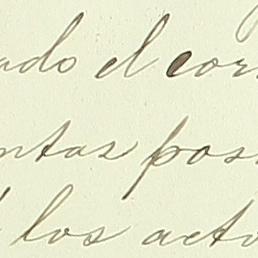 ado el cor
ntas pos
los acto